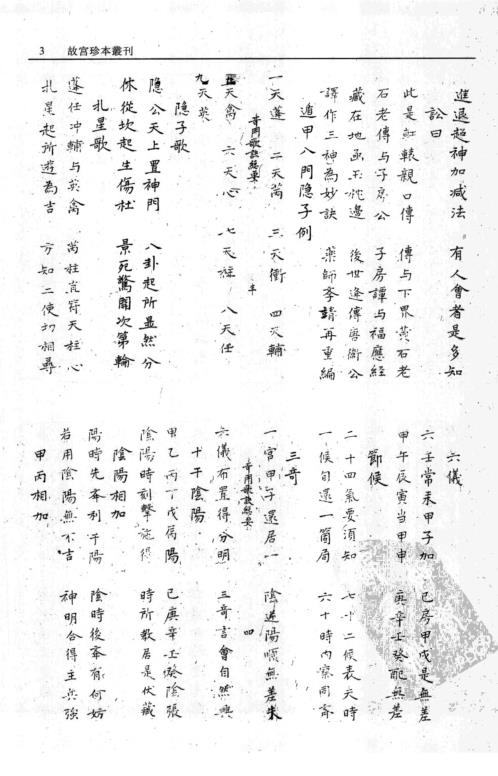 3 故宫珍本叢刊
進退超神加减法 有人會者是多知
訟曰
此是 轅親口傳 傳与下界黃石老
石老傳与子房公 子房譚与福應經
藏在地 玉 邊 後世逢傳 衛公
譯作三神為妙訣 藥師李請再重編
遁甲八門隐子例
奇門歌訣總要
一天蓬 二天芮 三天衝 四天輔
五天禽 六天心 七天柱 八天任
九天英
隐子歌
隐公天上置神門 八卦起所显然分
休從坎起生傷杜 景死驚開次第輪
九星歌
蓬任冲輔与英禽 芮柱肖符天柱心
九星起所遊為吉 方知二使切相尋
六儀
六壬常來甲子加 己房甲戌是無差
甲午辰寅当甲申 庚辛壬癸配無差
節候
二十四氣要須知 七十二候表天時
一候旬還一箇局 六十時内察同斎
三奇
一宫甲子還居一 陰逆陽順無差失
奇門歌訣總要
四
六儀布置得分明 三奇言會自然典
十干陰陽
甲乙丙丁戊属陽 己庚辛壬癸陰張
陰陽時刻擊施得 時所数居是伏藏
陰陽相加
陽時先奪利于陽 陰時後奪有何妨
若用陰陽無不吉 神明合得主兵強
甲丙相加